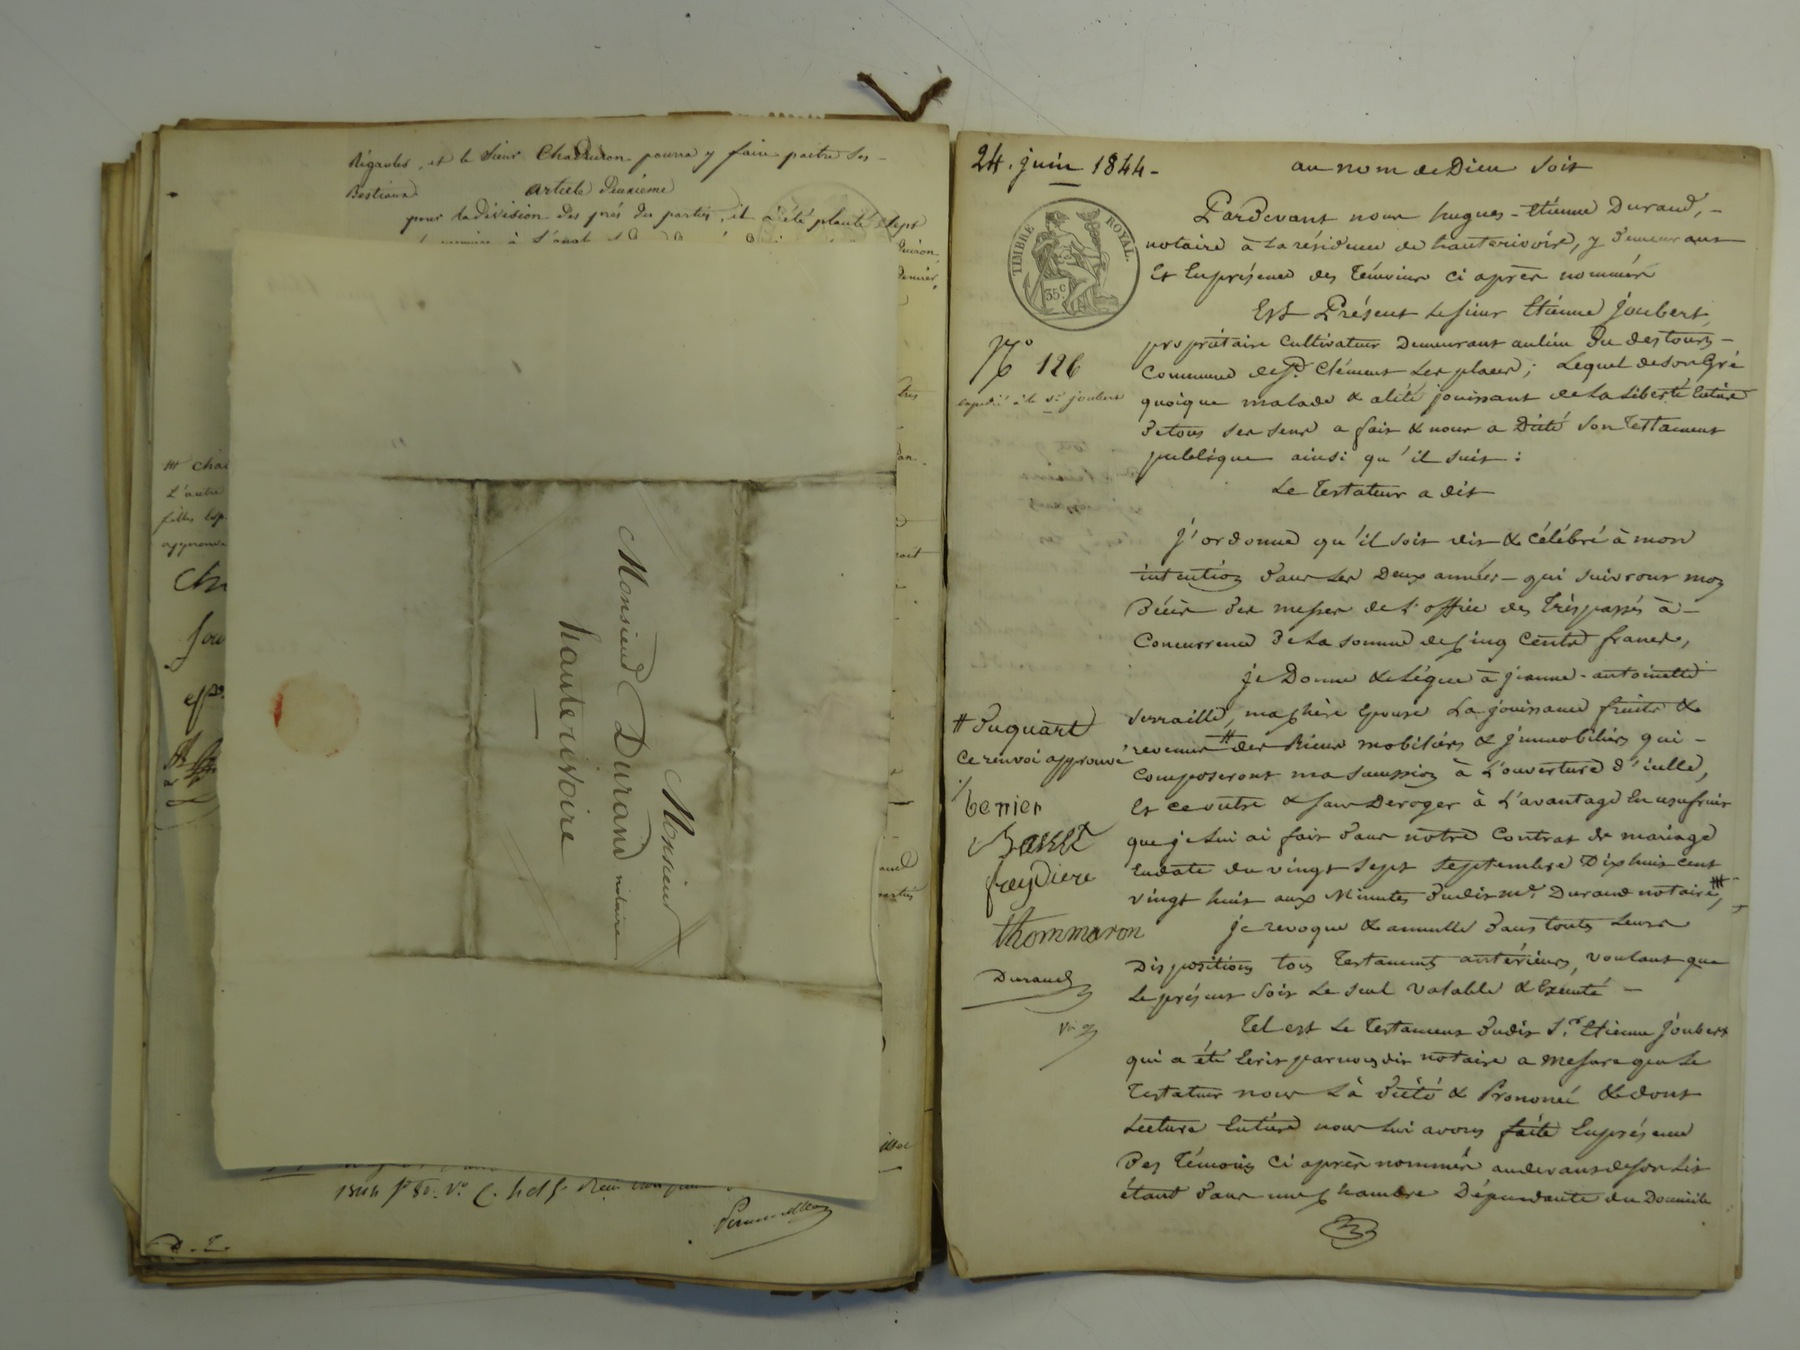 Régaules, et le Sieur Chaduiron pourra y faire paître Ses
Bestiaux
article Deuxième
pour la division des prés des parties, il a été planté sept
L'autre
approuvé
Monsieur
Monsieur Durand notaire
hauterivoire
24. juin 1844 -
au nom de Dieu soit
TIMBRE ROYAL.
35c
Pardevant nous hugues - Etienne Durand, -
notaire à la résidence de hauterivoire, y demeurant
Et En présence des Témoins ci après nommés
Est Présent le sieur Etienne Joubert,
propriétaire cultivateur Demeurant au lieu Du des tours -
Commune de St. Clément Les places ; Lequel de son Gré
quoique malade & alité jouissant de la Liberté Entière
De tous ses sens a fait & nous a Dicté son Testament
publique ainsi qu'il suit :
N° 126
expédié à la ve joubert
Le Testateur a dit
J'ordonne qu'il soit dit & célébré à mon
intention Dans les Deux années - qui suivront mon
Décès Des messes de l'office des Trépassés à -
Concurrence De La somme de Cinq Cents francs,
je Donne & Lègue à jeanne - antoinette
serraille, ma chère Epouse La jouissance fruits &
revenus # des Biens mobiliers & jmmobiliers qui -
composeront ma succession à L'ouverture d'icelle,
Et ce outre & sans Deroger à L'avantage En usufruit
que je Lui ai fait Dans notre Contrat de mariage
En date du vingt sept septembre Dix huit cent
vingt huit aux Minutes Dudit me Durand notaire,
je revoque & annulle Dans toutes Leurs
Dispositions tous Testaments antérieurs, voulant que
Le présent soit Le seul valable & Executé -
Tel est Le Testament Dudit Sr. Etienne Joubert
qui a été Ecrit par nous dit notaire a mesure que Le
Testateur nous L'a Dicté & Prononcé & dont
Lecture Entière nous lui avons faite En présence
Des Témoins ci après nommés au devant de son Lit
étant Dans une chambre Dépendante du Domicile
# Du quart
Ce renvoi approuvé
berrier
freydiere
thommaron
Durand